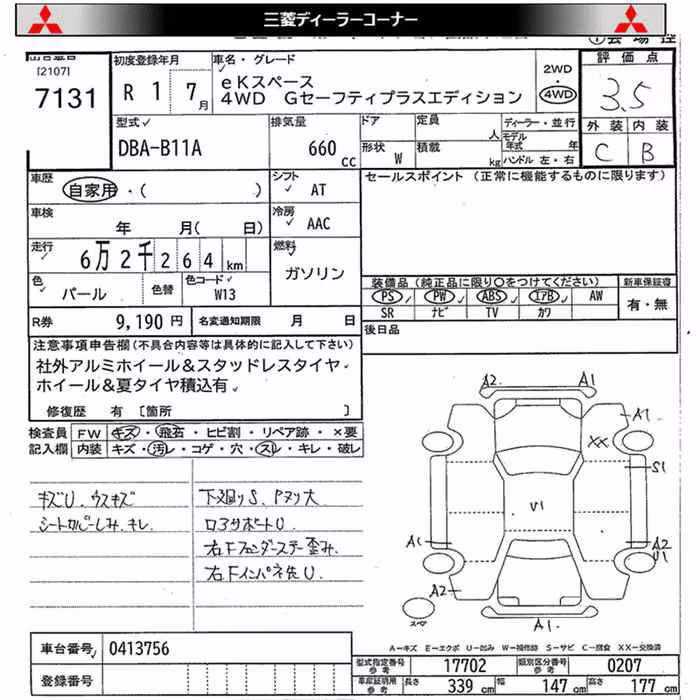 三菱ディーラーコーナー
[2107]
7131
初度登録年月
R 1 7月
車名・グレード
eKスペース
4WD Gセーフティプラスエディション
2WD
4WD
評価点
3.5
外装 内装
C B
型式
DBA-B11A
排気量
660 cc
ドア
定員 人
形状 W
積載 kg
ディーラー・並行
モデル年式 年
ハンドル 左・右
車歴
自家用・( )
シフト
AT
セールスポイント (正常に機能するものに限ります)
車検
年 月( 日)
冷房
AAC
走行
6万2千264km
燃料
ガソリン
色
パール
色替
色コード
W13
装備品(純正品に限り○をつけてください)
新車保証書
PS PW ABS エアB AW
SR ナビ TV カワ
有・無
R券 9,190円
名変通知期限 月 日
後日品
注意事項申告欄(不具合内容等は具体的に記入して下さい)
社外アルミホイール&スタッドレスタイヤ
ホイール&夏タイヤ積込有
修復歴 有 [箇所 ]
検査員記入欄
FW キズ・飛石・ヒビ割・リペア跡・×要
内装 キズ・汚レ・コゲ・穴・スレ・キレ・破レ
キズU、ウスキズ
シートカバーしみ、キレ
下廻りS、Pヌリ大
コアサポートU
右Fフェンダーステー歪み、
右Fインパネ先U
A2
A1
A1
XX
S1
V1
A1
A2
U1
A2
A1
スペア
A-キズ E-エクボ U-凹み W-補修跡 S-サビ C-腐食 XX-交換済
車台番号 0413756
登録番号
型式指定番号参考 17702
類別区分番号参考 0207
車庫証明用参考 長さ 339cm 幅 147cm 高さ 177cm